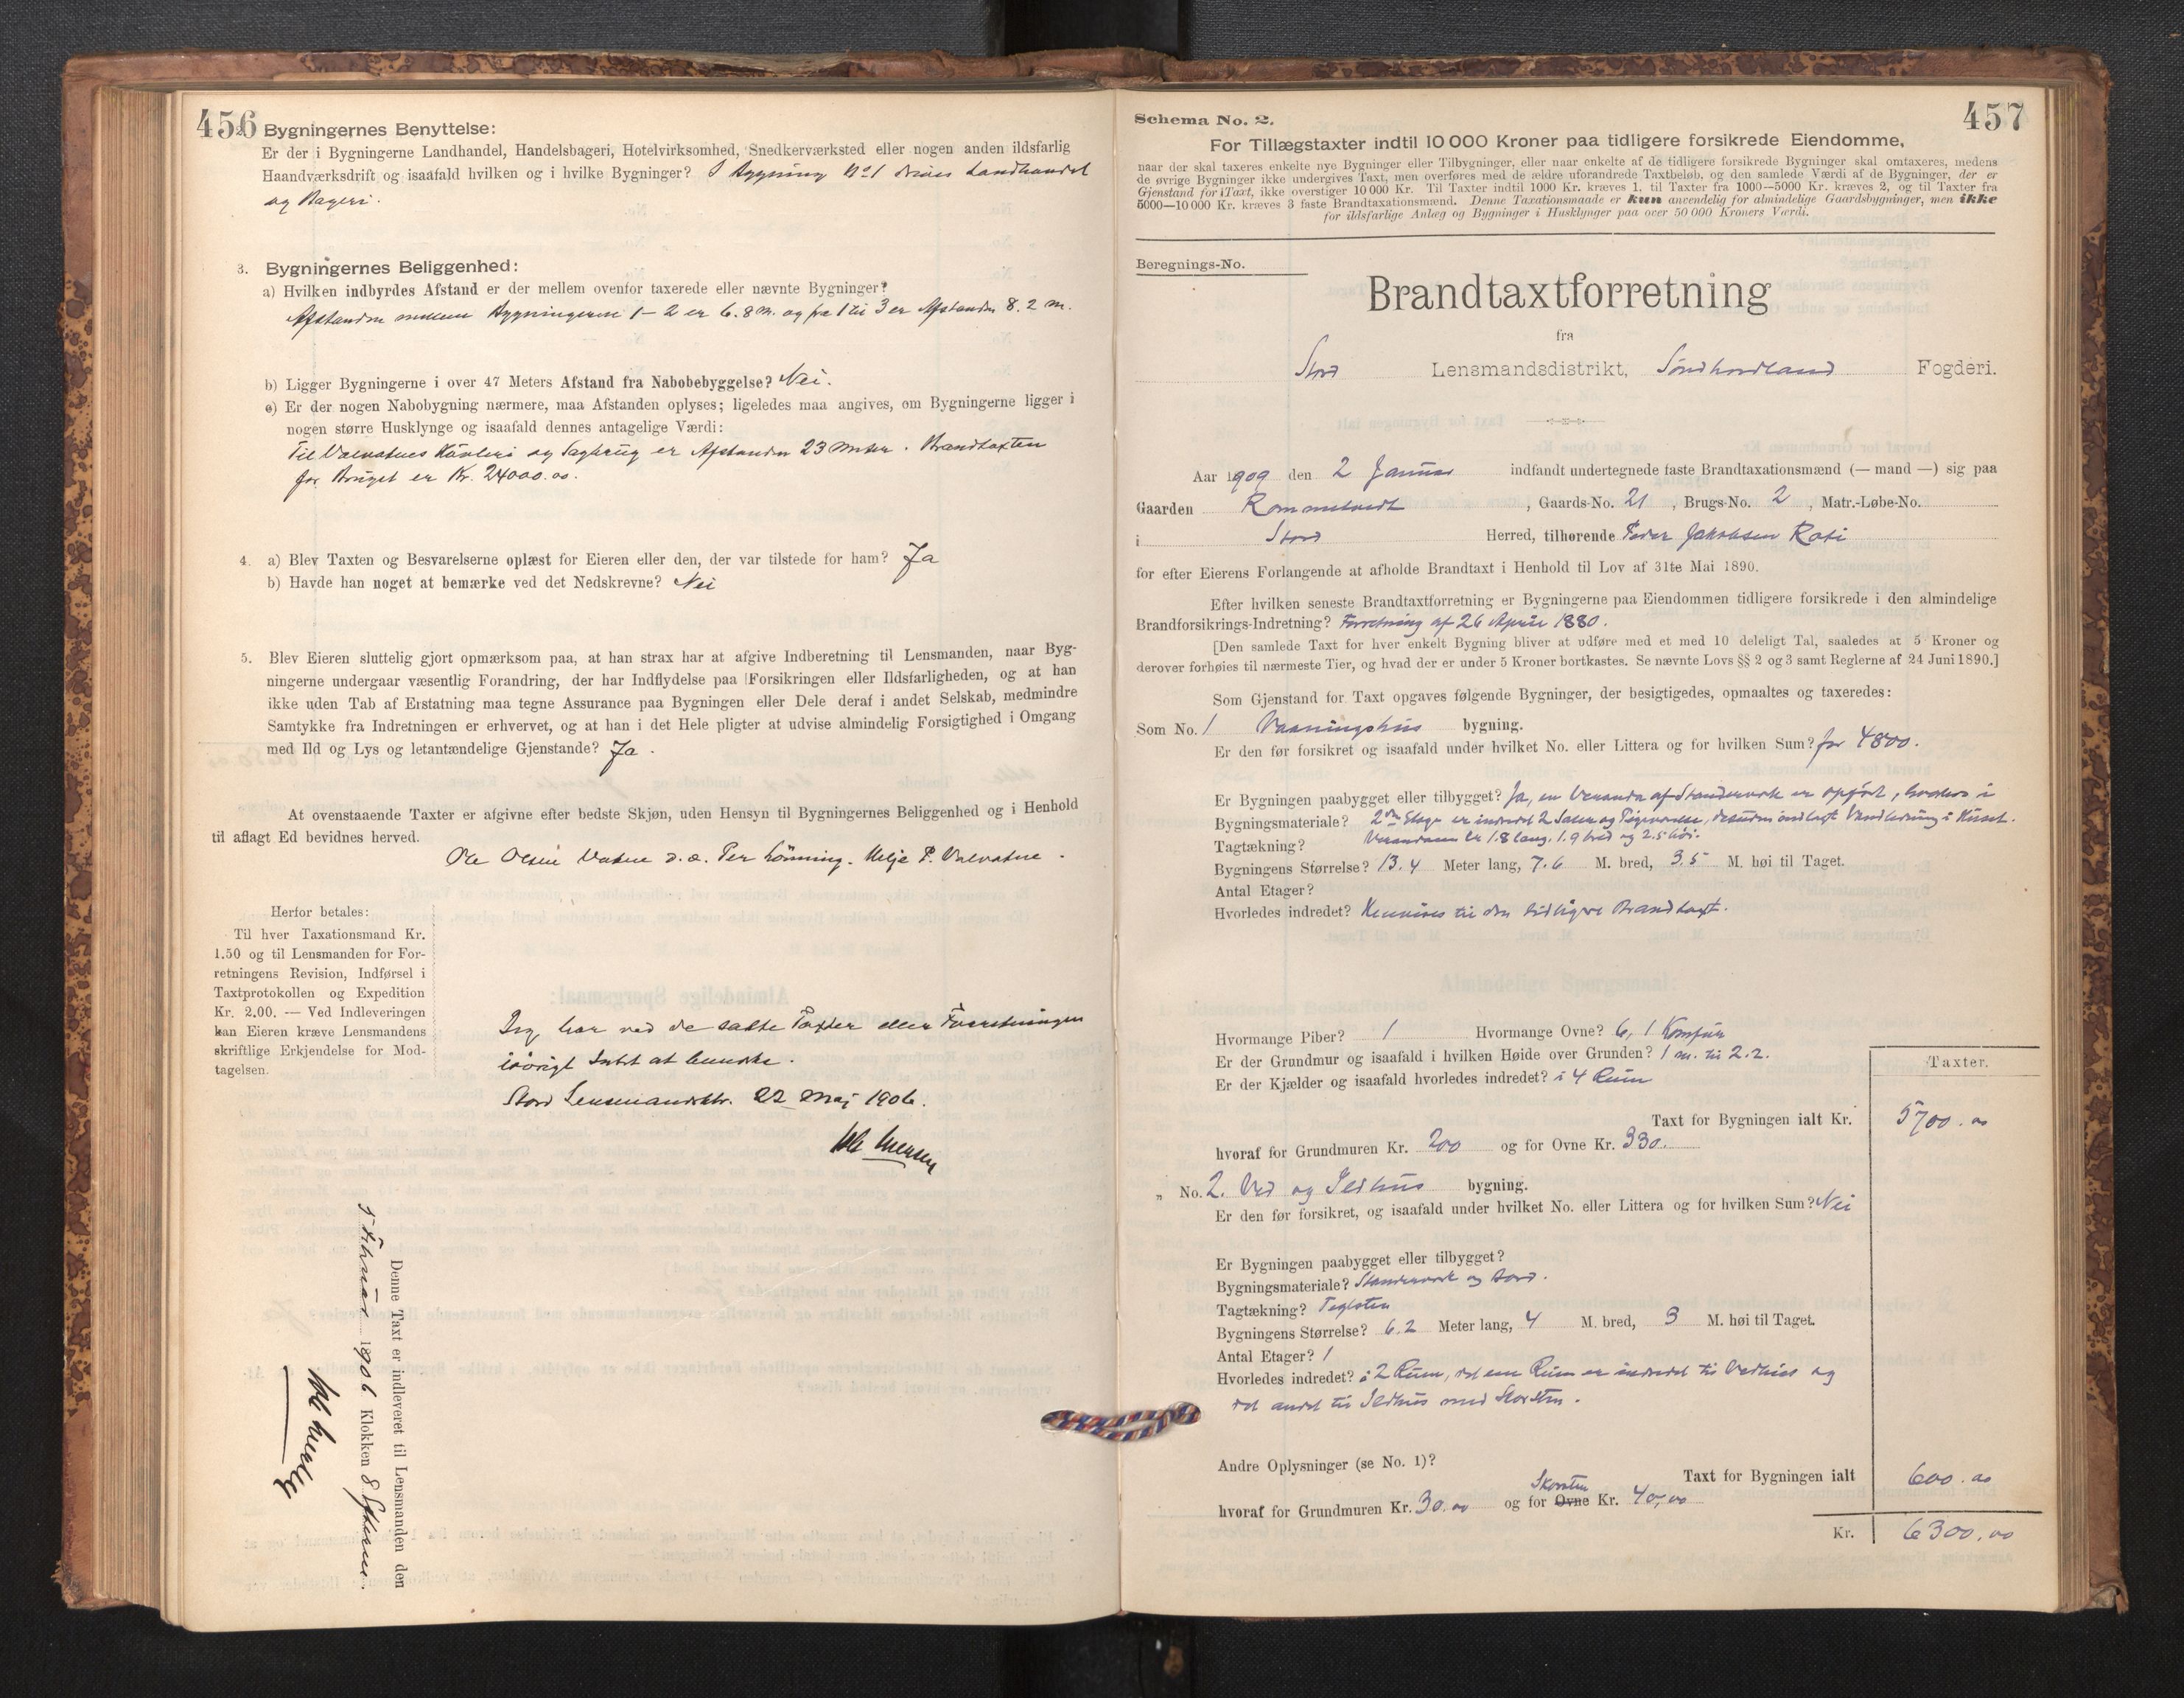 456
Bygningernes Benyttelse:
Er der i Bygningerne Landhandel, Handelsbageri, Hotelvirksomhed, Snedkerværksted eller nogen anden ildsfarlig
Haandværksdrift og isaafald hvilken og i hvilke Bygninger? I Bygning No 1 drives Landhandel
og Bageri.
3. Bygningernes Beliggenhed:
a) Hvilken indbyrdes Afstand er der mellem ovenfor taxerede eller nævnte Bygninger?
Afstanden mellem Bygningerne 1–2 er 6.8 m. og fra 1 til 3 er Afstanden 8.2 m.
b) Ligger Bygningerne i over 47 Meters Afstand fra Nabobebyggelse? Nei.
c) Er der nogen Nabobygning nærmere, maa Afstanden oplyses; ligeledes maa angives, om Bygningerne ligger i
nogen større Husklynge og isaafald dennes antagelige Værdi:
Til Valvatnes Høvleri og Sagbrug er Afstanden 23 meter. Brandtaxten
for Bruget er Kr. 24000.00.
4. a) Blev Taxten og Besvarelserne oplæst for Eieren eller den, der var tilstede for ham? Ja
b) Havde han noget at bemærke ved det Nedskrevne? Nei
5. Blev Eieren sluttelig gjort opmærksom paa, at han strax har at afgive Indberetning til Lensmanden, naar Byg-
ningerne undergaar væsentlig Forandring, der har Indflydelse paa Forsikringen eller Ildsfarligheden, og at han
ikke uden Tab af Erstatning maa tegne Assurance paa Bygningen eller Dele deraf i andet Selskab, medmindre
Samtykke fra Indretningen er erhvervet, og at han i det Hele pligter at udvise almindelig Forsigtighed i Omgang
med Ild og Lys og letantændelige Gjenstande? Ja.
At ovenstaaende Taxter er afgivne efter bedste Skjøn, uden Hensyn til Bygningernes Beliggenhed og i Henhold
til aflagt Ed bevidnes herved.
Ole Olsen Vatne d.æ. Per Lønning. Helje P. Valvatne.
Herfor betales:
Til hver Taxationsmand Kr.
1.50 og til Lensmanden for For-
retningens Revision, Indførsel i
Taxtprotokollen og Expedition
Kr. 2.00. — Ved Indleveringen
kan Eieren kræve Lensmandens
skriftlige Erkjendelse for Mod-
tagelsen.
Jeg har ved de satte Taxter eller Forretningen
iøvrigt Intet at bemerke.
Stord Lensmandsktr. 22 Mai 1906.
Denne Taxt er indleveret til Lensmanden den
5 Februar 1906 Klokken 8 Efterm.
457
Schema No. 2.
For Tillægstaxter indtil 10 000 Kroner paa tidligere forsikrede Eiendomme,
naar der skal taxeres enkelte nye Bygninger eller Tilbygninger, eller naar enkelte af de tidligere forsikrede Bygninger skal omtaxeres, medens
de øvrige Bygninger ikke undergives Taxt, men overføres med de ældre uforandrede Taxtbeløb, og den samlede Værdi af de Bygninger, der er
Gjenstand for Taxt, ikke overstiger 10 000 Kr. Til Taxter indtil 1000 Kr. kræves 1, til Taxter fra 1000—5000 Kr. kræves 2, og til Taxter fra
5000—10 000 Kr. kræves 3 faste Brandtaxationsmænd. Denne Taxationsmaade er kun anvendelig for almindelige Gaardsbygninger, men ikke
for ildsfarlige Anlæg og Bygninger i Husklynger paa over 50 000 Kroners Værdi.
Beregnings-No.
Brandtaxtforretning
fra
Stord Lensmandsdistrikt, Søndhordland Fogderi.
Aar 1909 den 2 Januar indfandt undertegnede faste Brandtaxationsmænd (— mand —) sig paa
Gaarden Rommetvedt, Gaards-No. 21, Brugs-No. 2, Matr.-Løbe-No.
i Stord Herred, tilhørende Peder Jakobsen Roti
for efter Eierens Forlangende at afholde Brandtaxt i Henhold til Lov af 31te Mai 1890.
Efter hvilken seneste Brandtaxtforretning er Bygningerne paa Eiendommen tidligere forsikrede i den almindelige
Brandforsikrings-Indretning? Forretning af 26 April 1880.
[Den samlede Taxt for hver enkelt Bygning bliver at udføre med et med 10 deleligt Tal, saaledes at 5 Kroner og
derover forhøies til nærmeste Tier, og hvad der er under 5 Kroner bortkastes. Se nævnte Lovs §§ 2 og 3 samt Reglerne af 24 Juni 1890.]
Som Gjenstand for Taxt opgaves følgende Bygninger, der besigtigedes, opmaaltes og taxeredes:
Som No. 1 Vaaningshus bygning.
Er den før forsikret og isaafald under hvilket No. eller Littera og for hvilken Sum? for 4800.
Er Bygningen paabygget eller tilbygget? Ja, en Veranda af Standerverk er opført, hvorhos i
Bygningsmateriale? 2den Etage er indredet 2 Saler og Pigeværelse, desuden indlagt Vandledning i Huset.
Tagtækning? Verandaen er 1.8 lang, 1.9 bred og 2.5 høi.
Bygningens Størrelse? 13.4 Meter lang, 7.6 M. bred, 3.5 M. høi til Taget.
Antal Etager?
Hvorledes indredet? Henvises til den tidligere Brandtaxt.
Hvormange Piber? 1 Hvormange Ovne? 6, 1 Komfur
Er der Grundmur og isaafald i hvilken Høide over Grunden? 1 m. til 2.2.
Er der Kjælder og isaafald hvorledes indredet? i 4 Rum
Taxter.
Taxt for Bygningen ialt Kr. 5700.00
hvoraf for Grundmuren Kr. 200 og for Ovne Kr. 330.
„ No. 2. Ved og Ildhus bygning.
Er den før forsikret, og isaafald under hvilket No. eller Littera og for hvilken Sum? Nei
Er Bygningen paabygget eller tilbygget?
Bygningsmateriale? Standerverk og bord.
Tagtækning? Teglsten
Bygningens Størrelse? 6.2 Meter lang, 4 M. bred, 3 M. høi til Taget.
Antal Etager? 1
Hvorledes indredet? i 2 Rum, det ene Rum er indredet til Vedhus og
det andet til Ildhus med Skorsten.
Andre Oplysninger (se No. 1)?
Taxt for Bygningen ialt 600.00
Skorsten
hvoraf for Grundmuren Kr. 30.00 og for Ovne Kr. 40,00
Kr. 6300,00